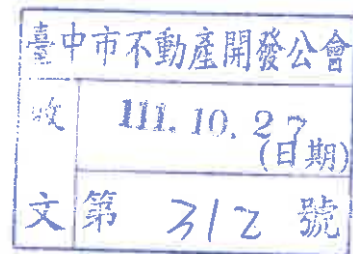 臺中市不動產開發公會
收
111. 10. 27
(日期)
文
第 312 號